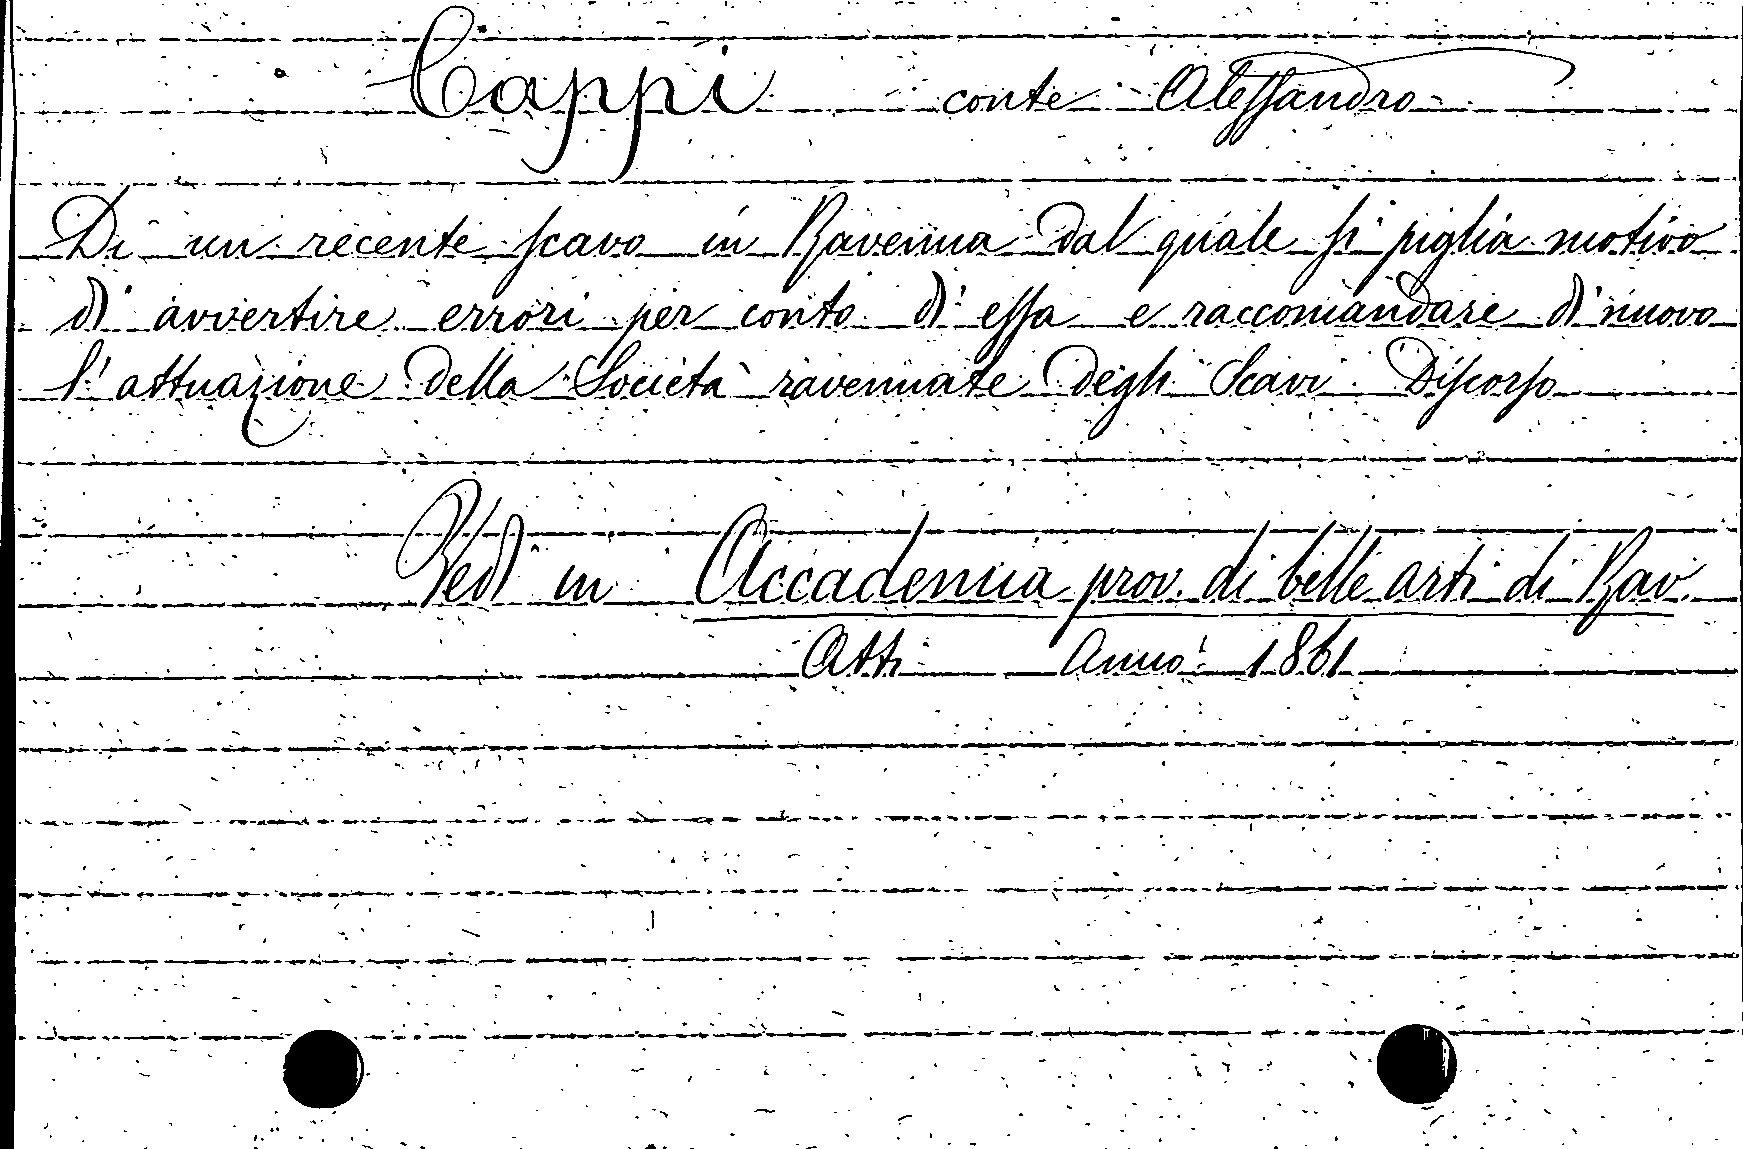 Cappi conte Alessandro
Di un recente scavo in Ravenna dal quale si piglia motivo
di avvertire errori per conto di essa e raccomandare di nuovo
l'attuazione della Società ravennate degli Scavi. Discorso
Vedi in Accademia prov. di belle arti di Rav.
Atti Anno 1861